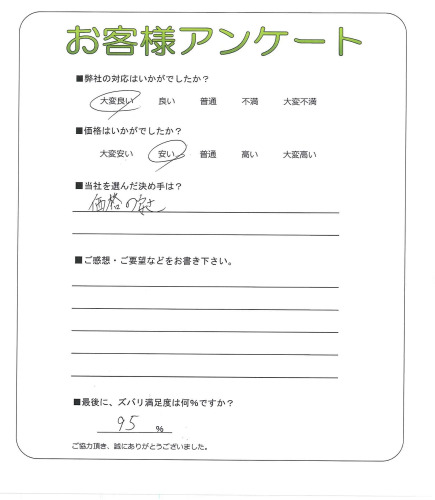 お客様アンケート
■弊社の対応はいかがでしたか？
大変良い 良い 普通 不満 大変不満
■価格はいかがでしたか？
大変安い 安い 普通 高い 大変高い
■当社を選んだ決め手は？
価格の安さ
■ご感想・ご要望などをお書き下さい。
■最後に、ズバリ満足度は何％ですか？
95 %
ご協力頂き、誠にありがとうございました。